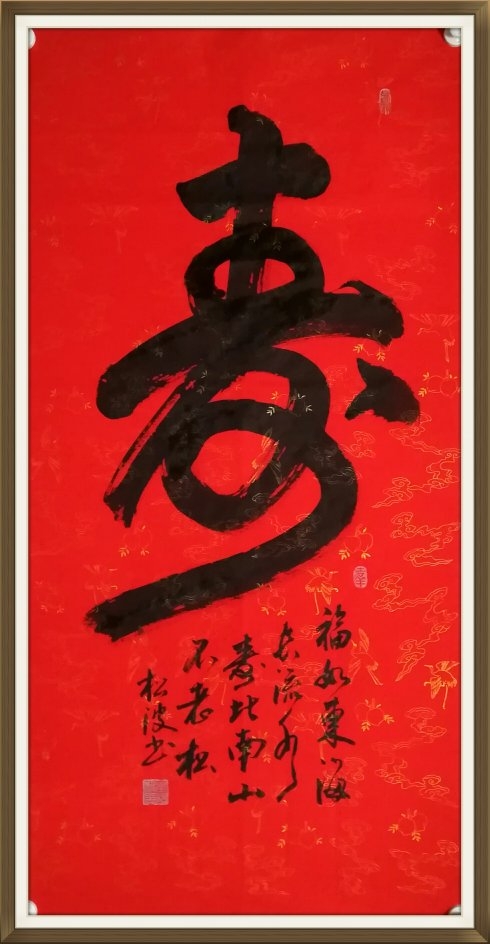 寿
福如东海
长流水
寿比南山
不老松
松波书